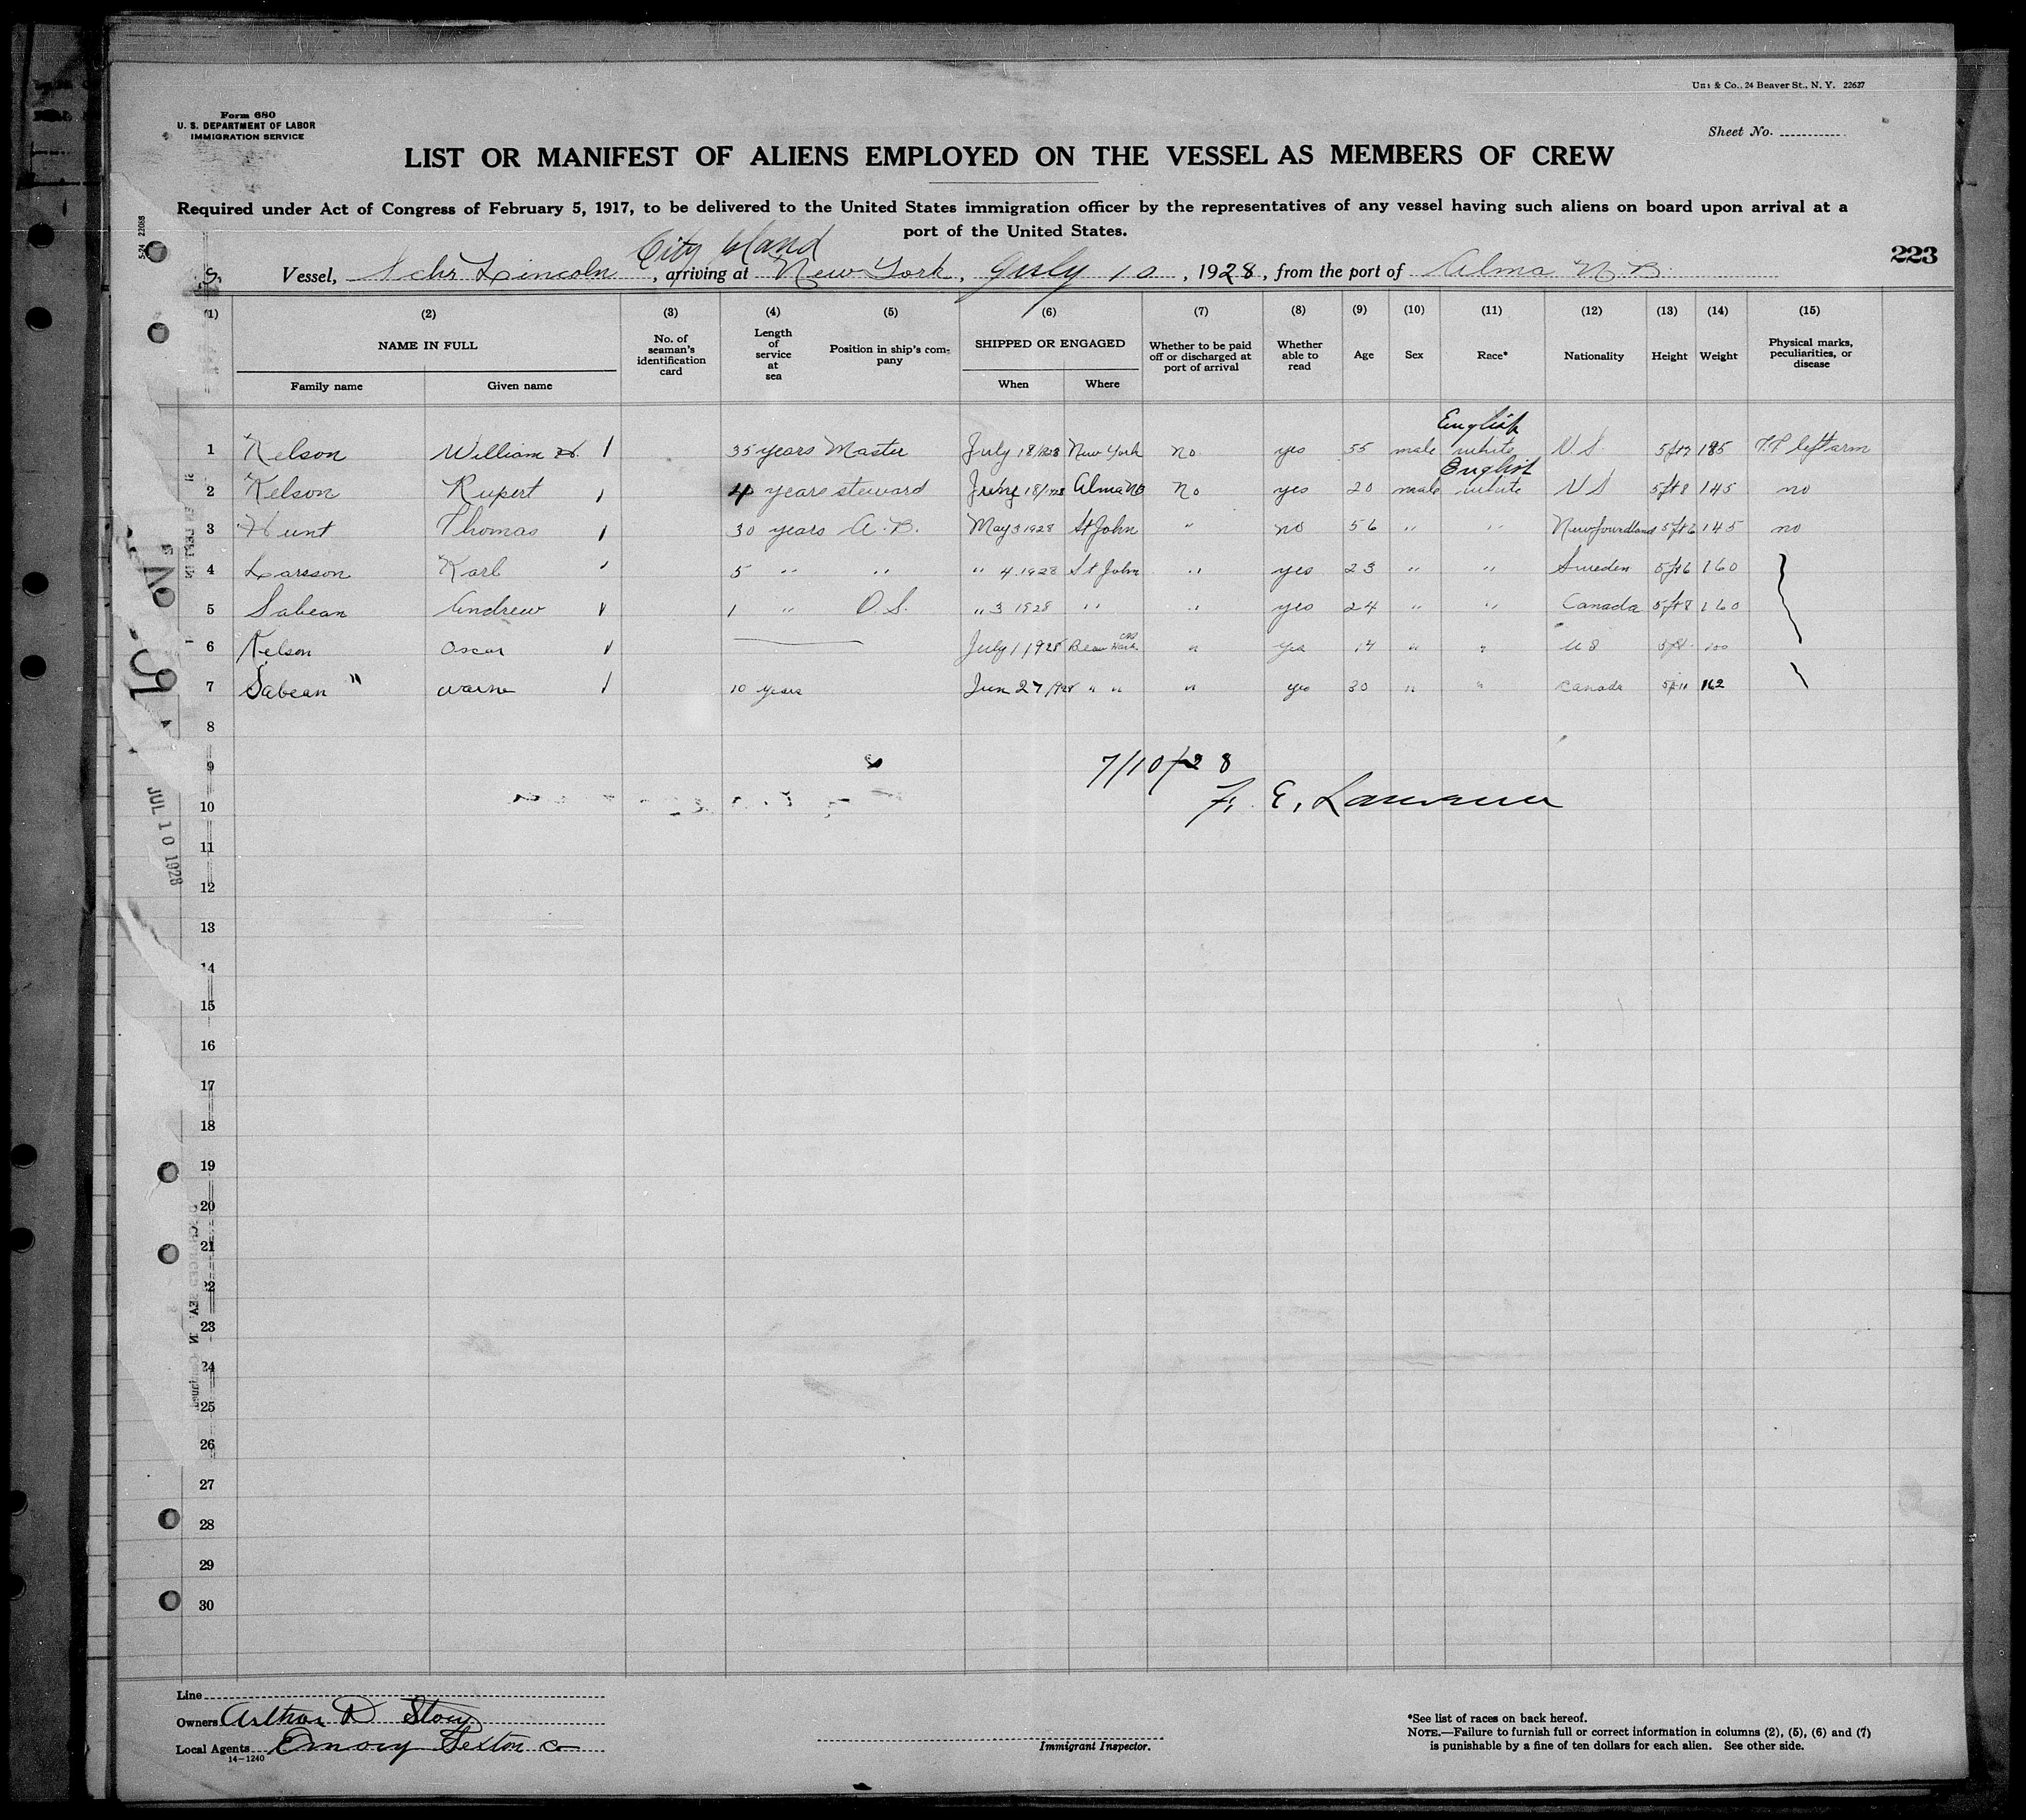 Form 680
U. S. DEPARTMENT OF LABOR
IMMIGRATION SERVICE
& Co., 24 Beaver St., N. Y. 22627
Sheet No.
LIST OR MANIFEST OF ALIENS EMPLOYED ON THE VESSEL AS MEMBERS OF CREW
Required under Act of Congress of February 5, 1917, to be delivered to the United States immigration officer by the representatives of any vessel having such aliens on board upon arrival at a
port of the United States.
223
City Island
Vessel, Schr Lincoln, arriving at New York, July 10, 1928, from the port of Alma N.B.
(1) (2) (3) (4) (5) (6) (7) (8) (9) (10) (11) (12) (13) (14) (15)
NAME IN FULL
Family name Given name
No. of seaman's identification card
Length of service at sea
Position in ship's company
SHIPPED OR ENGAGED
When Where
Whether to be paid off or discharged at port of arrival
Whether able to read
Age Sex Race* Nationality Height Weight
Physical marks, peculiarities, or disease
English
1 Kelson William H. 35 years Master July 18/1928 New York no yes 55 male white U.S. 185 left arm
English
2 Kelson Rupert 4 years steward 18/1928 Alma NB No yes 20 male white US 5ft 8 145 no
3 Hunt Thomas 30 years A.B. May 3 1928 St John " no 56 " " Newfoundland 5ft 6 145 no
4 Larsson Karl 5 " " " 4 1928 St John " yes 23 " " Sweden 5ft 6 160
5 Sabean Andrew 1 " O.S. " 3 1928 " " yes 24 " " Canada 5ft 8 160
6 Kelson Oscar July 1 1928 " yes 14 " " US 5ft 100
7 Sabean " 10 years Jun 27/1928 " " " yes 30 " " Canada 5ft 11 162
8
9
7/10/28
10
F. E. Lawrence
11
12
13
14
15
16
17
18
19
20
21
22
23
24
25
26
27
28
29
30
JUL 10 1928
Line
Owners Arthur D Story
Local Agents Emory Sexton Co
14-1240
Immigrant Inspector.
*See list of races on back hereof.
NOTE.—Failure to furnish full or correct information in columns (2), (5), (6) and (7)
is punishable by a fine of ten dollars for each alien. See other side.